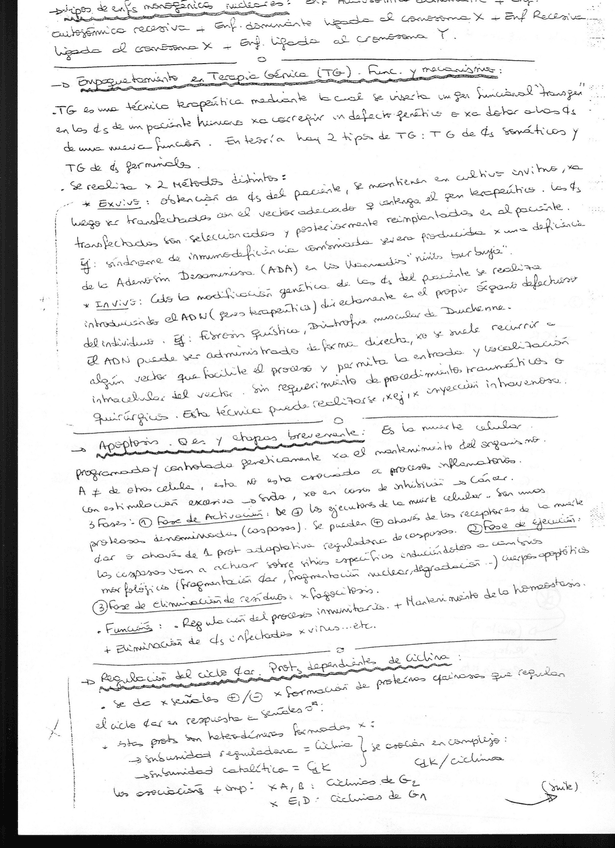 → Tipos de enfs monogénicas nucleares:
autosómica recesiva + Enf. dominante ligada al cromosoma X + Enf Recesiva
ligada al cromosoma X + Enf. ligada al Cromosoma Y.
→ Empaquetamiento en Terapia Génica (TG). Func. y mecanismo:
. TG es una técnica terapéutica mediante la cual se inserta un gen funcional "transgen"
en las ȼs de un paciente humano xa corregir un defecto genético o xa dotar a las ȼs
de una nueva función. En teoría hay 2 tipos de TG: TG de ȼs somáticas y
TG de ȼs germinales.
. Se realiza x 2 Métodos distintos:
* Exvivo: obtención de ȼs del paciente, se mantienen en cultivo invitro, xa
luego ser transfectadas con el vector adecuado q contenga el gen terapeútico. Las ȼs
transfectadas son seleccionadas y posteriormente reimplantadas en el paciente.
Ej: síndrome de inmunodeficiencia combinada severa producida x una deficiencia
de la Adenosin Desaminasa (ADA) en los llamados "niños burbuja".
* Invivo: Cdo la modificación genética de las ȼs del paciente se realiza
introduciendo el ADN (genes terapeútica) directamente en el propio órgano defectuoso
del individuo. Ej: Fibrosis Quística, Distrofia muscular de Duchenne.
El ADN puede ser administrado de forma directa, xo se suele recurrir a
algún vector que facilite el proceso y permita la entrada y localización
intracelular del vector. Sin requerimiento de procedimientos traumáticos o
quirúrgicos. Esta técnica puede realizarse, x ej, x inyección intravenosa.
→ Apoptosis. Q es y etapas brevemente: Es la muerte celular
programada y controlada genéticamente xa el mantenimiento del organismo.
A ≠ de otras celula, esta no esta asociada a procesos inflamatorios.
Con estimulación excesiva → Sida, xo en casos de inhibición → Cáncer.
3 Fases: ① Fase de Activación: De ⊕ los ejecutores de la muerte celular. Son unas
proteasas denominadas (caspasas). Se pueden ⊕ através de los receptores de la muerte
ȼar o através de 1 prot adaptativa reguladora de caspasas. ② Fase de ejecución:
las caspasas van a actuar sobre sitios específicos induciéndolos a cambios
morfológicos (fragmentación ȼar, fragmentación nuclear, degradación...) cuerpos apoptóticos
③ Fase de eliminación de residuos: x fagocitosis.
. Función: . Regulación del procesos inmunitarios. + Mantenimiento de la homeostasis.
+ Eliminación de ȼs infectadas x virus... etc.
→ Regulación del ciclo ȼar. Prots dependientes de Ciclina:
. Se da x señales ⊕/⊖ x formación de proteínas quinasas que regulan
el ciclo ȼar en respuesta a señales
. Estas prots son heterodímeros formados x:
→ Subunidad reguladora = Ciclina } Se asocian en complejo:
→ Subunidad catalítica = CdK Cdk/ciclinas
Las asociaciones + imp: x A, B: Ciclinas de G2
x E, D: Ciclinas de G1